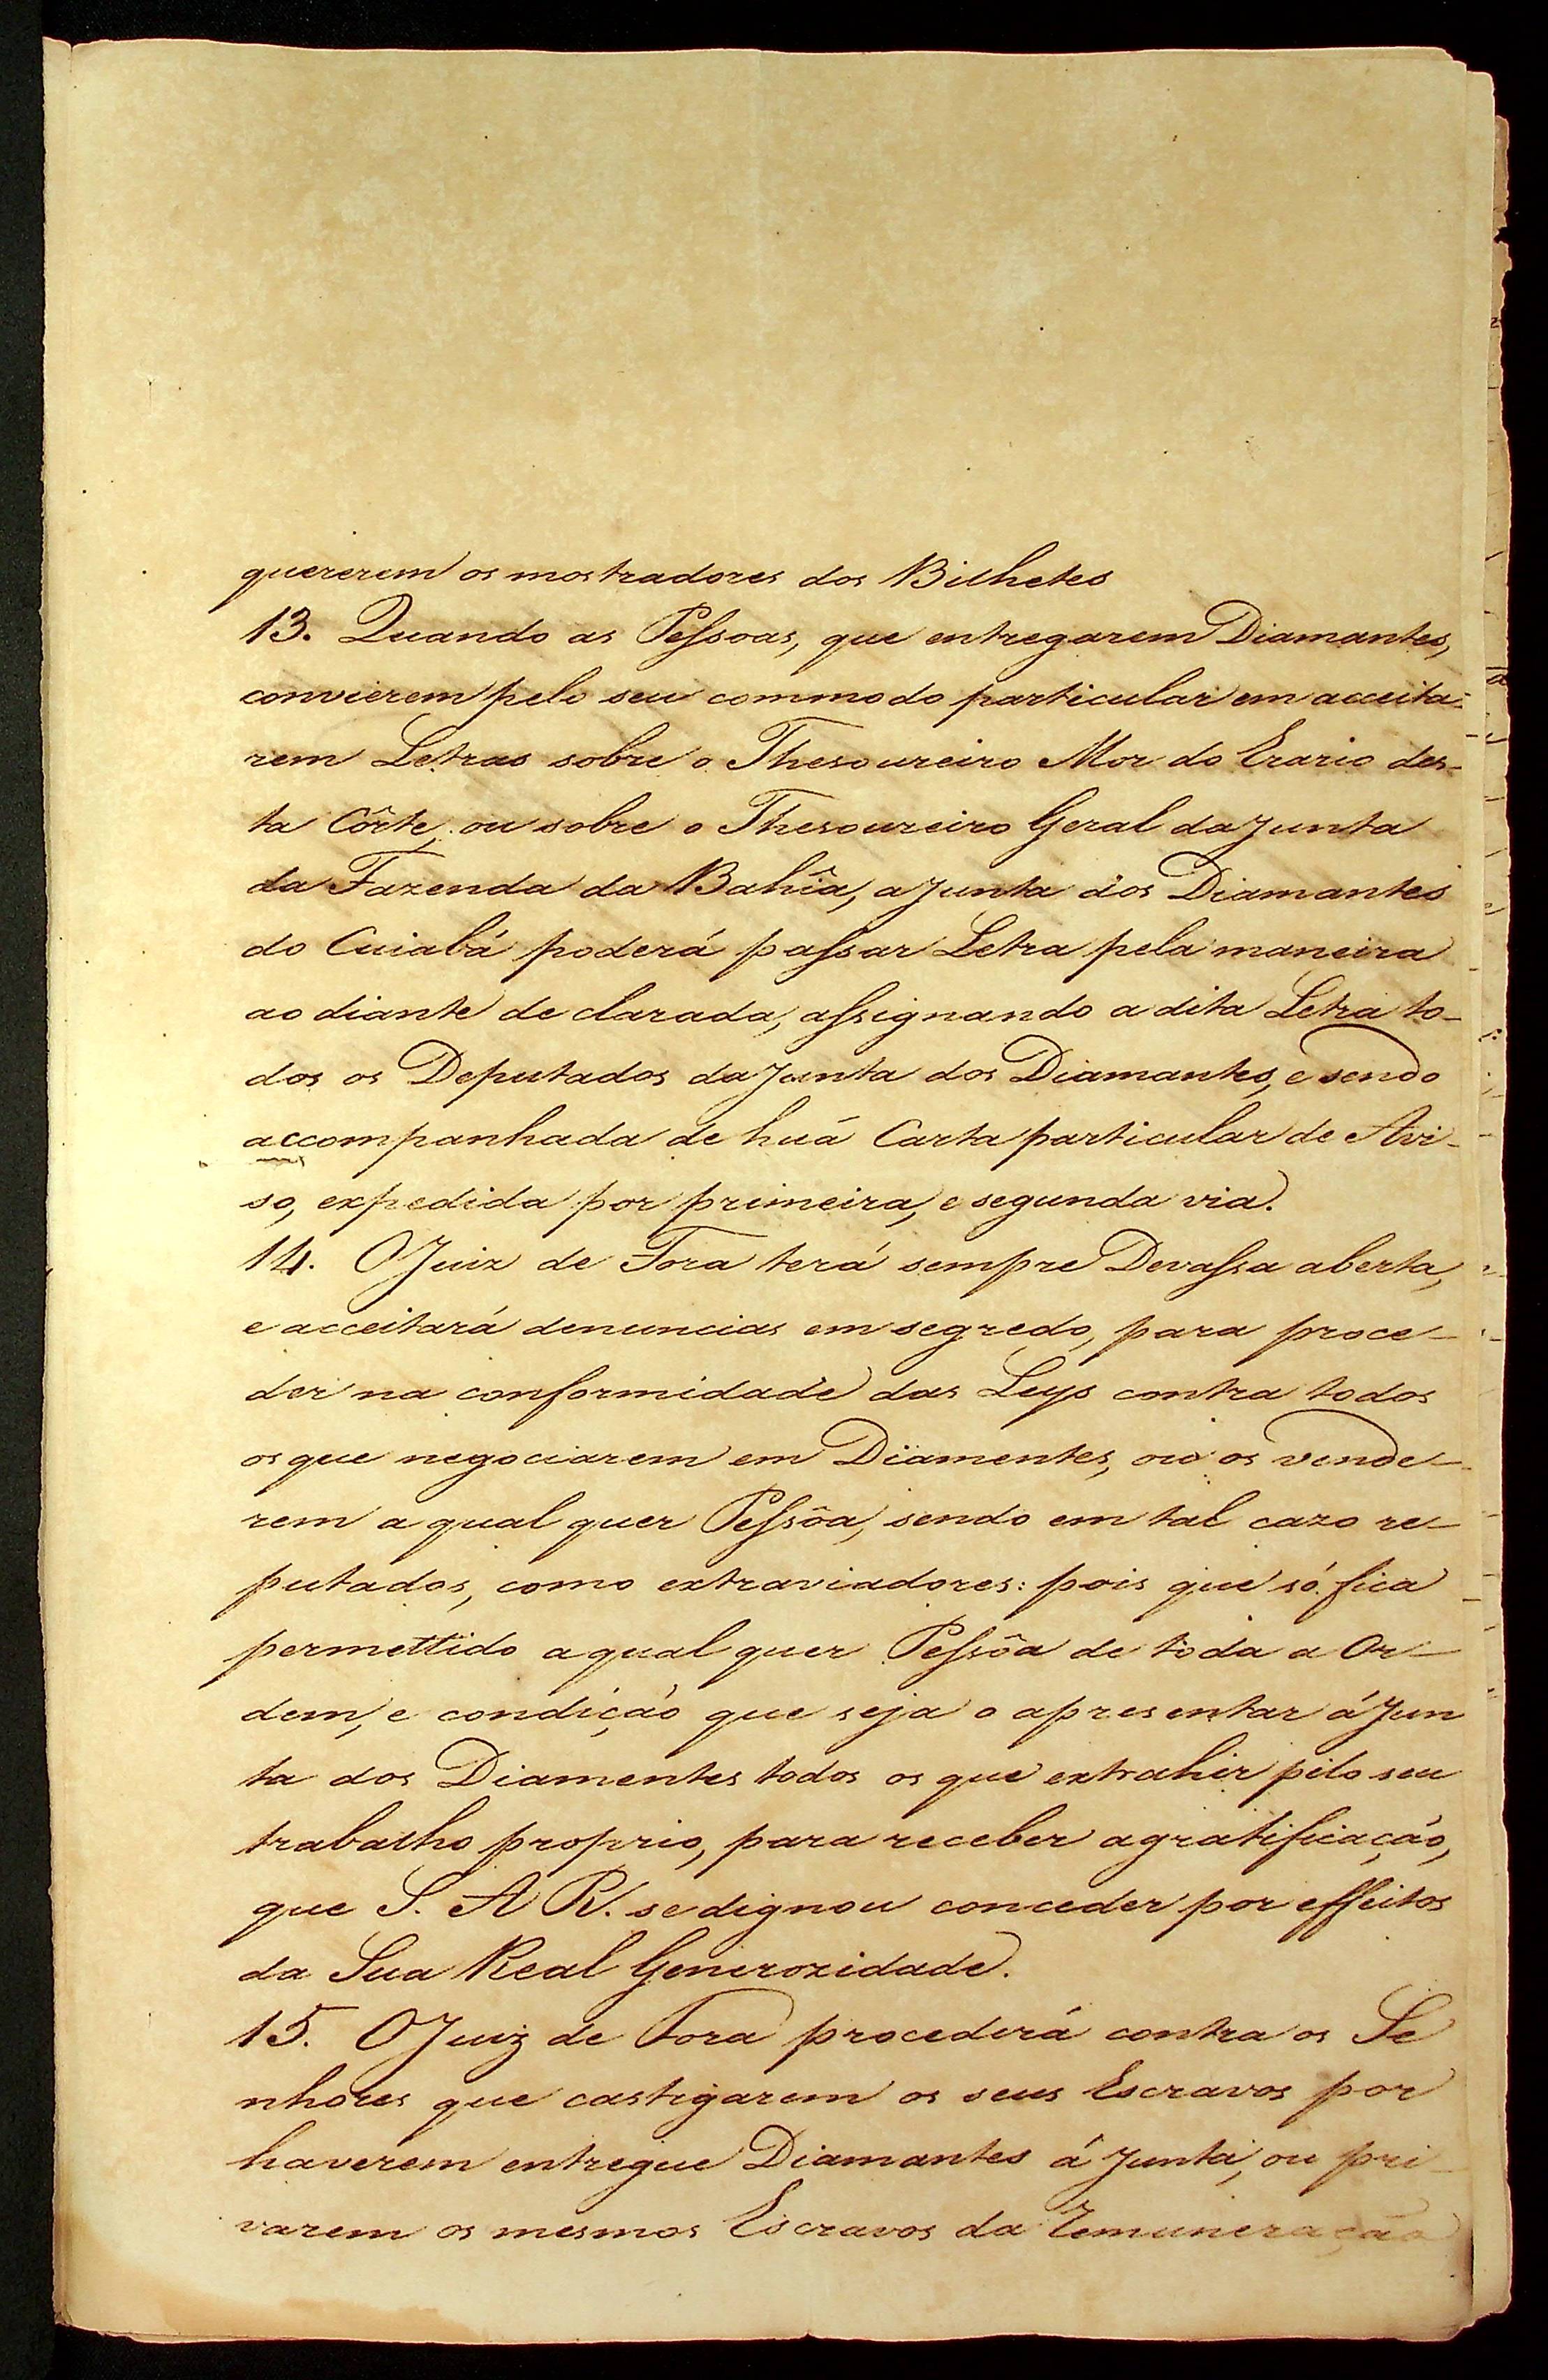 quererem os mostradores dos Bilhetes
13. Quando as Peſsoas, que entregarem Diamantes,
convierem pelo seu commodo particular em acceita-
rem Letras sobre o Thesoureiro Mor do Erario des-
ta Côrte, ou sobre o Thesoureiro Geral da Junta
da Fazenda da Bahîa, a Junta dos Diamantes
do Cuiabá poderá paſsar Letra pela maneira
ao diante de clarada, aſsignando a dita Letra to-
dos os Deputados da Junta dos Diamantes, e sendo
accompanhada de huá Carta particular de Avi-
so, expedida por primeira, e segunda via.
14. O Juiz de Fora terá sempre Devaſsa aberta,
e acceitará denuncias em segredo, para proce-
der na conformidade das Leys contra todos
os que negociarem em Diamentes, ou os vende-
rem a qual quer Peſsôa, sendo em tal cazo re-
putados, como extraviadores: pois que só fica
permettido a qual quer Peſsôa de toda a Or-
dem, e condição que seja o apresentar á Jun
ta dos Diamentes todos os que extrahir pelo seu
trabalho proprio, para receber a gratificação,
que S. A R. se dignou conceder por effeitos
da Sua Real Generozidade.
15. O Juiz de Fora procederá contra os Se
nhores que castigarem os seus Escravos por
haverem entregue Diamantes á Junta, ou pri-
varem os mesmos Escravos da Remuneração